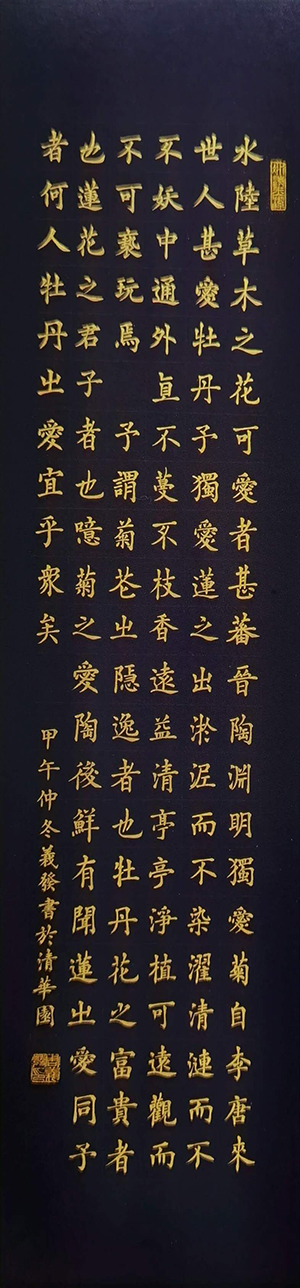 水陸草木之花可愛者甚蕃晉陶淵明獨愛菊自李唐來
世人甚愛牡丹予獨愛蓮之出淤泥而不染濯清漣而不
不妖中通外直不蔓不枝香遠益清亭亭淨植可遠觀而
不可褻玩焉 予謂菊花之隱逸者也牡丹花之富貴者
也蓮花之君子者也噫菊之愛陶後鮮有聞蓮之愛同予
者何人牡丹之愛宜乎衆矣
甲午仲冬義發書於清華園